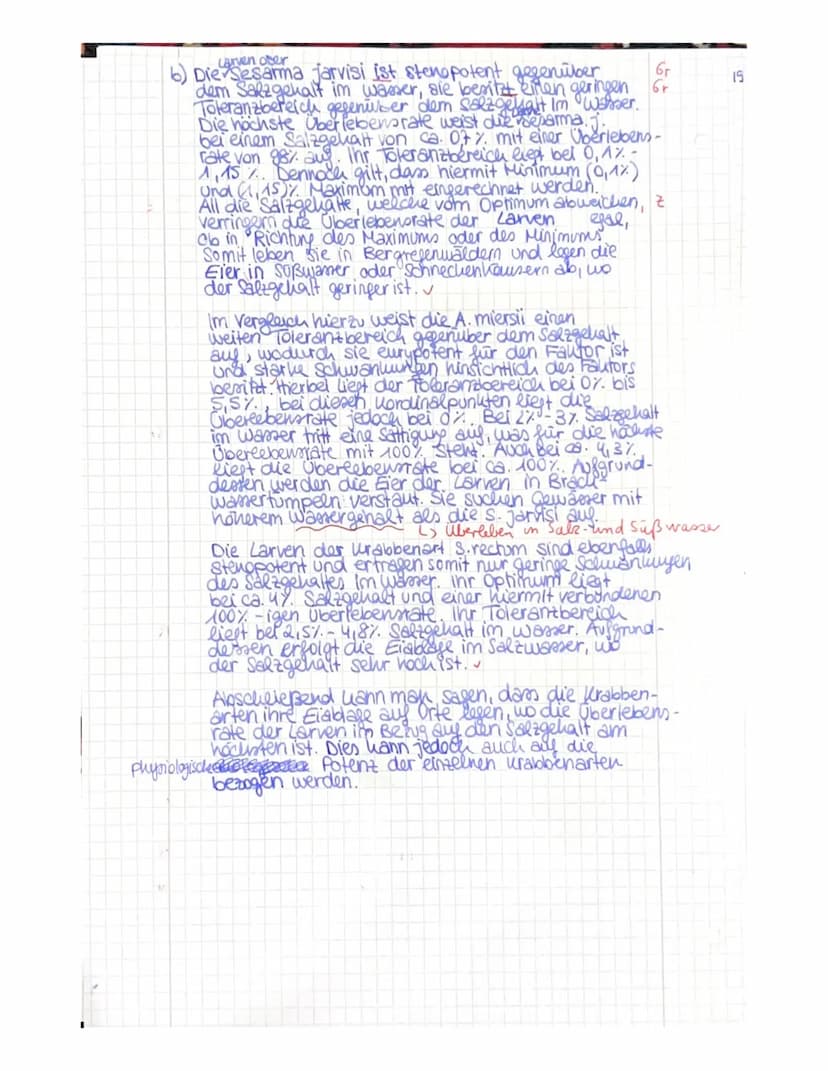 Larven der
b) Die Sesarma jarvisi ist stenopotent gegenüber Gr 19
dem Salzgehalt im Wasser, sie besitzt einen geringen Gr
Toleranzbereich gegenüber dem Salzgehalt im Wasser.
Die höchste Überlebensrate weist die Sesarma j.
bei einem Salzgehalt von ca. 0,7% mit einer Überlebens-
rate von 98% auf. Ihr Toleranzbereich liegt bei 0,1% -
1,15%. Dennoch gilt, dass hiermit Minimum (0,1%)
und (1,15)% Maximum mit eingerechnet werden.
All die Salzgehälte, welche vom Optimum abweichen, Z
verringern die Überlebensrate der Larven egal,
ob in Richtung des Maximums oder des Minimums
Somit leben sie in Bergregenwäldern und legen die
Eier in Süßwasser oder Schneckenhäusern ab, wo
der Salzgehalt geringer ist. ✓
Im Vergleich hierzu weist die A. miersii einen
weiten Toleranzbereich gegenüber dem Salzgehalt
auf, wodurch sie eurypotent für den Faktor ist
und starke Schwankungen hinsichtlich des Faktors
besitzt. Hierbei liegt der Toleranzbereich bei 0% bis
5,5%, bei diesen Kordinalpunkten liegt die
Überlebensrate jedoch bei 0%. Bei 2% - 3% Salzgehalt
im Wasser tritt eine Sättigung auf, was für die höchste
Überlebensrate mit 100% steht. Auch bei ca. 4,3%
liegt die Überlebensrate bei ca. 100%. Aufgrund-
dessen werden die Eier der Larven in Brack-
wassertümpeln verstaut. Sie suchen Gewässer mit
höherem Wassergehalt als die S. jarvisi auf.
↳ Überleben in Salz- und Süßwasser
Die Larven der Krabbenart S. rectum sind ebenfalls
stenopotent und ertragen somit nur geringe Schwankungen
des Salzgehaltes im Wasser. Ihr Optimum liegt
bei ca. 4% Salzgehalt und einer hiermit verbundenen
100%-igen Überlebensrate. Ihr Toleranzbereich
liegt bei 2,5% - 4,8% Salzgehalt im Wasser. Aufgrund-
dessen erfolgt die Eiablage im Salzwasser, wo
der Salzgehalt sehr hoch ist. ✓
Abschließend kann man sagen, dass die Krabben-
arten ihre Eiablage auf Orte legen, wo die Überlebens-
rate der Larven im Bezug auf den Salzgehalt am
höchsten ist. Dies kann jedoch auch auf die
physiologische Potenz der einzelnen Krabbenarten
bezogen werden.